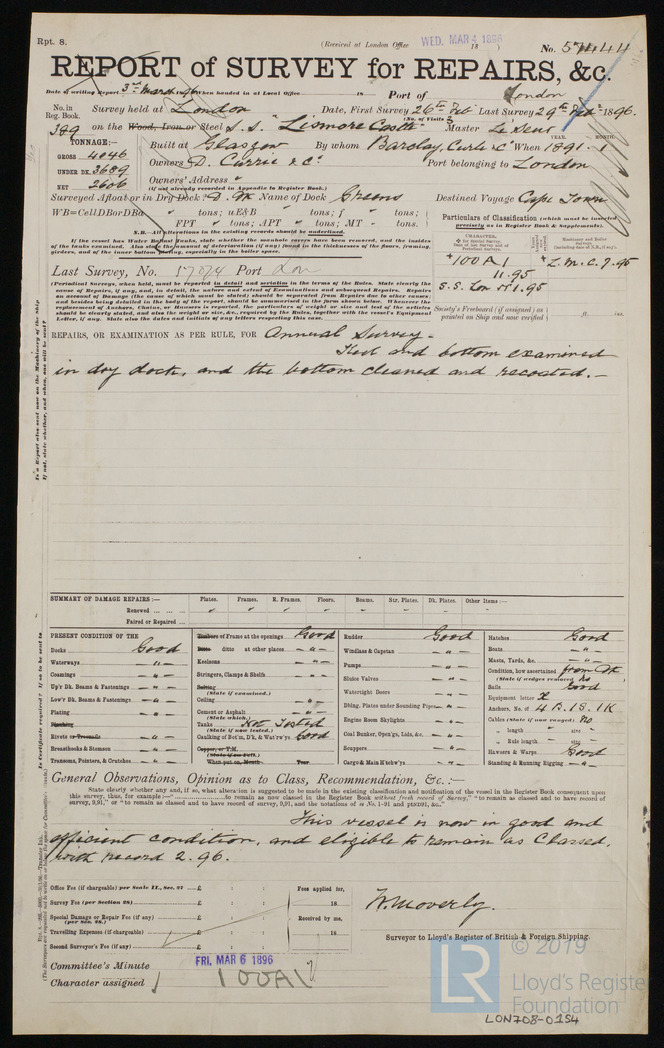 Rpt. 8.
(Received at London Office WED. MAR 4 1896 18 )
No. 57444
REPORT of SURVEY for REPAIRS, &c.
Date of writing Report 3rd March 96 When handed in at Local Office 18 Port of London
No. in Reg. Book. Survey held at London Date, First Survey 26th Feb Last Survey 29th Feb 1896.
(No. of Visits 3
389 on the Wood, Iron or Steel S.S. "Lismore Castle" Master Le Seur
TONNAGE:—
GROSS 4046
UNDER DK. 3689
NET 2606
Built at Glasgow By whom Barclay, Curle & Co When 1891 . 1
YEAR. MONTH.
Owners D. Currie & Co. Port belonging to London
Owners' Address "
(if not already recorded in Appendix to Register Book.)
Surveyed Afloat or in Dry Dock? D. Dk Name of Dock Greens Destined Voyage Cape Town
WB=CellDBorDBa " tons; uE&B " tons; f " tons;
FPT " tons; APT " tons; MT - tons.
N.B.—All alterations in the existing records should be underlined.
If the vessel has Water Ballast Tanks, state whether the manhole covers have been removed, and the insides
of the tanks examined. Also state the amount of deterioration (if any) found in the thicknesses of the floors, framing,
girders, and of the inner bottom plating, especially in the boiler space.
Particulars of Classification (which must be inserted
precisely as in Register Book & Supplements).
CHARACTER.
+100A1
11.95
S.S. Lon No 1.95
+L.M.C. 7.95
Society's Freeboard (if assigned) as
painted on Ship and now verified
ft. ins.
Last Survey, No. 57074 Port Lon
(Periodical Surveys, when held, must be reported in detail and seriatim in the terms of the Rules. State clearly the
cause of Repairs, if any, and, in detail, the nature and extent of Examinations and subsequent Repairs. Repairs
on account of Damage (the cause of which must be stated) should be separated from Repairs due to other causes;
and besides being detailed in the body of the report, should be summarised in the form shown below.
REPAIRS, OR EXAMINATION AS PER RULE, FOR Annual Survey.—
Keel and bottom examined
in dry dock, and the bottom cleaned and recoated.—
SUMMARY OF DAMAGE REPAIRS:— Plates. Frames. R. Frames. Floors. Beams. Str. Plates. Dk. Plates. Other Items:—
Renewed ... ... ...
Faired or Repaired ...
PRESENT CONDITION OF THE
Decks Good
Waterways — " —
Coamings — " —
Up'r Dk. Beams & Fastenings — " —
Low'r Dk. Beams & Fastenings — " —
Plating — " —
Planking
Rivets or Treenails — " —
Breasthooks & Stemson — " —
Transoms, Pointers, & Crutches — " —
Timbers of Frame at the openings Good
Ditto ditto at other places — " —
Keelsons — " —
Stringers, Clamps & Shelfs — " —
Salting
(State if examined.)
Ceiling — " —
Cement or Asphalt — " —
(State which.)
Tanks Not Tested
(State if now tested.)
Caulking of Bot'm, D'k, & Wat'rw'ys Good
Copper, or Y.M.
(State if on Felt.)
When put on, Month Year
Rudder Good
Windlass & Capstan — " —
Pumps — " —
Sluice Valves — " —
Watertight Doors — " —
Dblng. Plates under Sounding Pipes — " —
Engine Room Skylights — " —
Coal Bunker, Open'gs, Lids, &c. — " —
Scuppers — " —
Cargo & Main H'tchw'ys — " —
Hatches Good
Boats — " —
Masts, Yards, &c. — " —
Condition, how ascertained from Dk.
(State if wedges removed) no
Sails Good
Equipment letter X
Anchors, No. of 4 B. 1 S. 1 K
Cables (State if now ranged) No
" length "
" Rule length " size
Hawsers & Warps Good
Standing & Running Rigging — " —
General Observations, Opinion as to Class, Recommendation, &c.:—
State clearly whether any, and if so, what alteration is suggested to be made in the existing classification and notification of the vessel in the Register Book consequent upon
this survey, thus, for example:—"to remain as now classed in the Register Book without fresh record of Survey," "to remain as classed and to have record of
survey, 9,91," or "to remain as classed and to have record of survey, 9,91, and the notations of ss No. 1-91 and ptsND91, &c."
This vessel is now in good and
efficient condition, and eligible to remain as Classed,
with record 2.96.
Office Fee (if chargeable) per Scale II., Sec. 27 £ : : Fees applied for,
Survey Fee (per Section 28) £ : : 18
Special Damage or Repair Fee (if any) £ : : Received by me,
(per Sec. 28.)
Travelling Expenses (if chargeable) £ : : 18
Second Surveyor's Fee (if any) £ : :
W. Moverly.
Surveyor to Lloyd's Register of British & Foreign Shipping.
Committee's Minute FRI. MAR 6 1896
Character assigned 100A1
© 2019
LR
Lloyd's Register
Foundation
LON708-0154